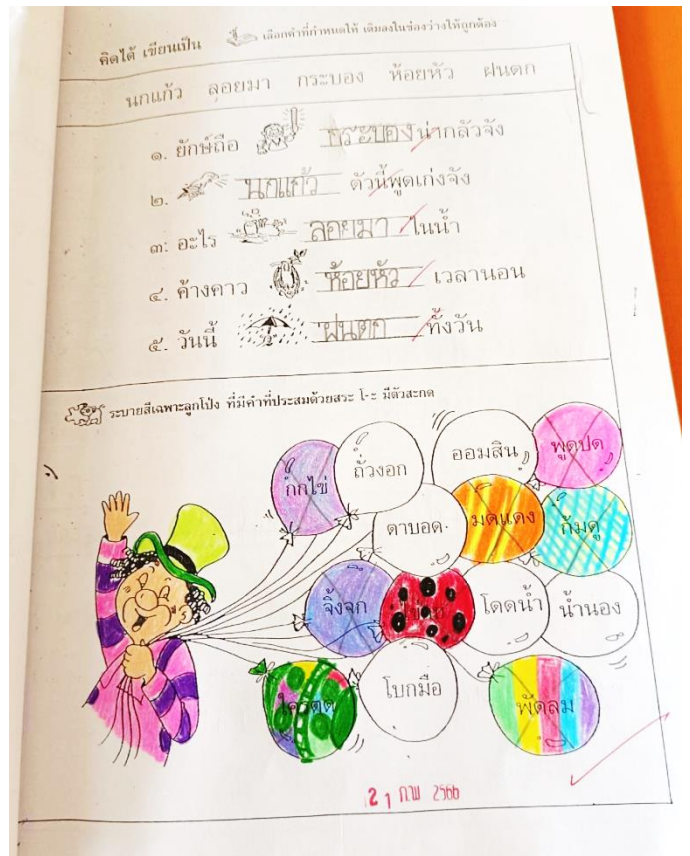 คิดได้ เขียนเป็น
เลือกคำที่กำหนดให้ เติมลงในช่องว่างให้ถูกต้อง
นกแก้ว ลอยมา กระบอง ห้อยหัว ฝนตก
๑. ยักษ์ถือ กระบอง น่ากลัวจัง
๒. นกแก้ว ตัวนี้พูดเก่งจัง
๓. อะไร ลอยมา ในน้ำ
๔. ค้างคาว ห้อยหัว เวลานอน
๕. วันนี้ ฝนตก ทั้งวัน
ระบายสีเฉพาะลูกโป่ง ที่มีคำที่ประสมด้วยสระ โ-ะ มีตัวสะกด
กกไข่
ถั่วงอก
ออมสิน
พูดปด
ตาบอด
มดแดง
ก้มดู
จิ้งจก
โดดน้ำ
น้ำนอง
โบกมือ
พัดลม
21 กพ 2566